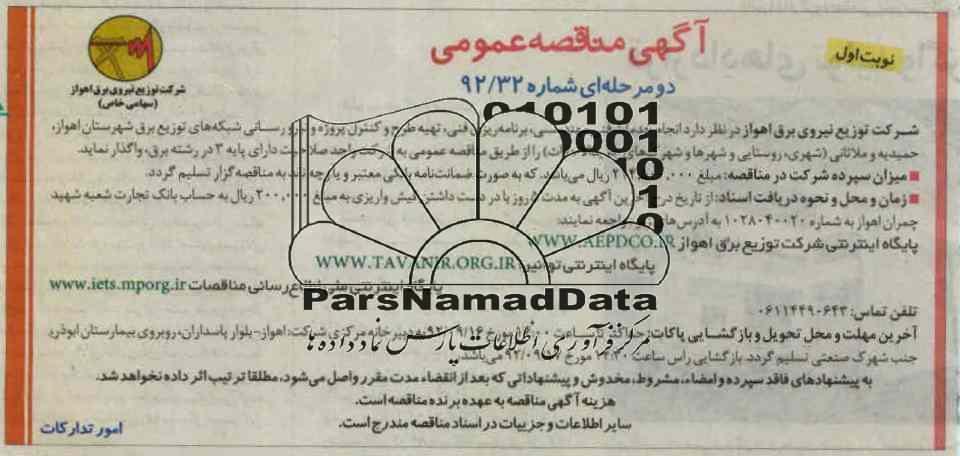 آگهی مناقصه عمومی
نوبت اول
دو مرحله‌ای شماره ۹۲/۳۲
شرکت توزیع نیروی برق اهواز
(سهامی خاص)
010101
0001
10
1
0
شرکت توزیع نیروی برق اهواز در نظر دارد انجام فنی، تهیه طرح و کنترل پروژه و نیرو رسانی شبکه‌های توزیع برق شهرستان اهواز،
حمیدیه و ملاثانی (شهری، روستایی و شهرها و شهرک‌های را از طریق مناقصه عمومی به شرکت واجد صلاحیت دارای پایه ۳ در رشته برق، واگذار نماید.
■ میزان سپرده شرکت در مناقصه: مبلغ ریال می‌باشد. که به صورت ضمانت‌نامه بانکی معتبر و یا چه نقد به مناقصه گزار تسلیم گردد.
■ زمان و محل و نحوه دریافت اسناد: از تاریخ درج آخرین آگهی به مدت ۵ روز با در دست داشتن فیش واریزی به مبلغ ۲۰۰,۰۰۰ ریال به حساب بانک تجارت شعبه شهید
چمران اهواز به شماره ۱۰۲۸۰۴۰۰۲۰ به آدرس‌های مراجعه نمایند:
پایگاه اینترنتی شرکت توزیع برق اهواز WWW.AEPDCO.IR
پایگاه اینترنتی توانیر: WWW.TAVANIR.ORG.IR
پایگاه اینترنتی ملی اطلاع رسانی مناقصات www.iets.mporg.ir
ParsNamadData
تلفن تماس: ۰۶۱۱۴۴۹۰۶۴۳
مرکز فرآوری اطلاعات پارس نماد داده‌ها
آخرین مهلت و محل تحویل و بازگشایی پاکات: حداکثر ساعت مورخ ۹۲/۰۹/۱۶ به دبیرخانه مرکزی شرکت: اهواز- بلوار پاسداران، روبروی بیمارستان ابوذر،
جنب شهرک صنعتی تسلیم گردد. بازگشایی راس ساعت ۱۴:۳۰ مورخ می‌باشد.
به پیشنهادهای فاقد سپرده و امضاء، مشروط، مخدوش و پیشنهاداتی که بعد از انقضاء مدت مقرر واصل می‌شود، مطلقا ترتیب اثر داده نخواهد شد.
هزینه آگهی مناقصه به عهده برنده مناقصه است.
سایر اطلاعات و جزییات در اسناد مناقصه مندرج است.
امور تدارکات